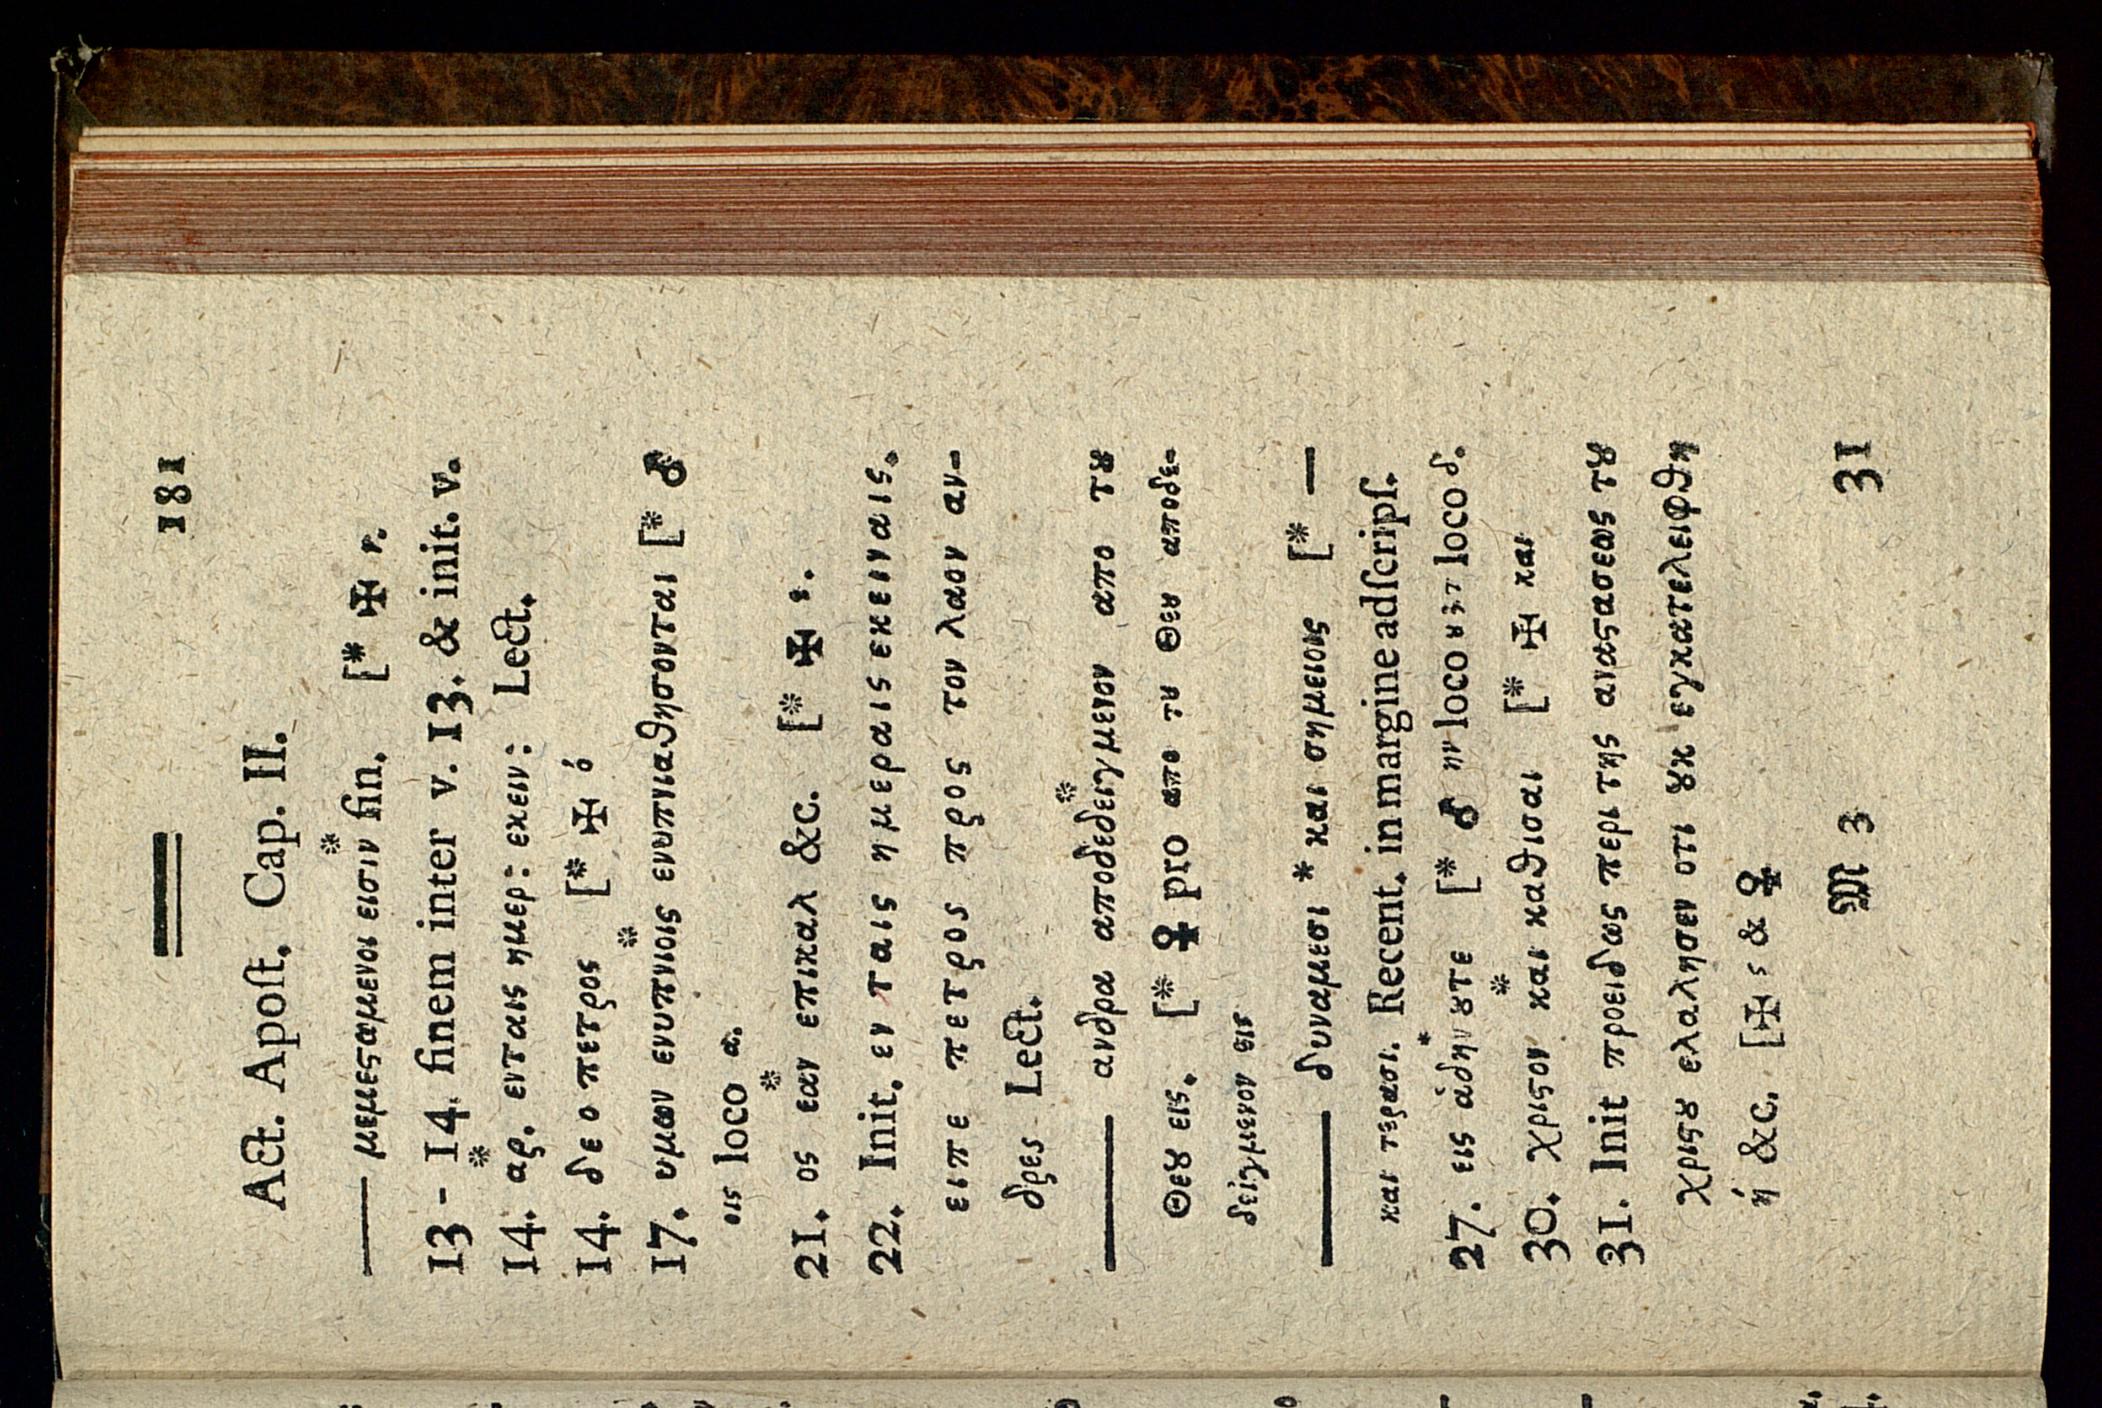 181
Act. Apoſt. Cap. II.
— μεμεϛαμενοι εισιν* fin. [* ✠ ν.
13 - 14. finem inter v. 13. & init. v.
14. αρ*. ενταις ημερ: εκειν: Lect.
14. δε ο πετρος [* ✠ ὁ
17. υμων ενυπνιοις* ενυπνιαθησονται [* ♂
οις loco α.
21. ος εαν* επικαλ &c. [* ✠ ε.
22. Init. εν ταις ημεραις εκειναις.
ειπε πετρος προς τον λαον αν-
δρες Lect.
— ανδρα αποδεδειγμενον* απο τȣ
Θεȣ εις. [* ♀ pro απο τȣ Θεȣ αποδε-
δειγμενον εις
— δυναμεσι * και σημειοις [* —
και τερασι. Recent. in margine adſcripſ.
27. εις ἁδην* ȣτε [* ♂ ην loco ȣ ετ loco δ.
30. χριϛον και* καθισαι [* ✠ και
31. Init προειδως περι της αναϛασεως τȣ
χριϛȣ ελαλησεν οτι ȣκ εγκατελειφθη
ἡ &c. [✠ ς & ♀
M 3 31